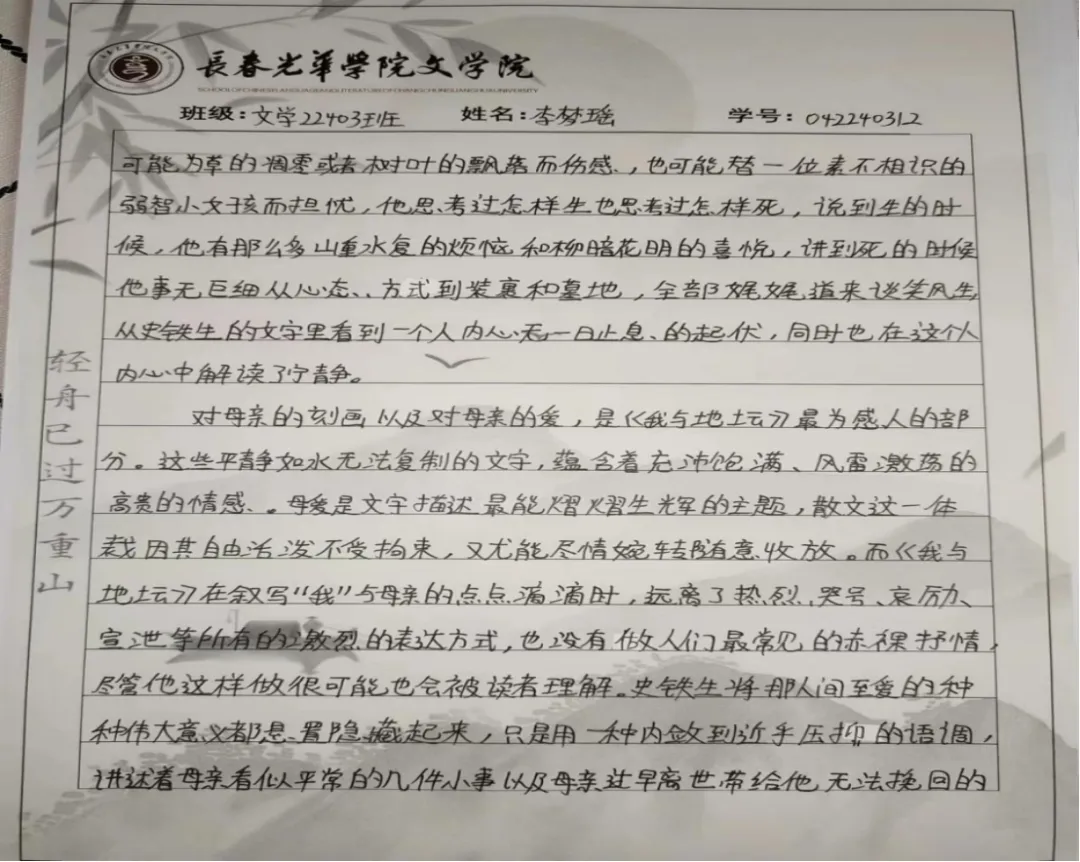 長春光華學院文学院
SCHOOL OF CHINESE LANGUAGE AND LITERATURE OF CHANGCHUN GUANGHUA UNIVERSITY
班级:文学22403班 姓名:李梦瑶 学号:042240312
可能为草的凋零或者树叶的飘落而伤感,也可能替一位素不相识的
弱智小女孩而担忧,他思考过怎样生也思考过怎样死,说到生的时
候,他有那么多山重水复的烦恼和柳暗花明的喜悦,讲到死的时候
他事无巨细从心态、方式到装裹和墓地,全部娓娓道来谈笑风生,
从史铁生的文字里看到一个人内心无一日止息的起伏,同时也在这个人
内心中解读了宁静。
对母亲的刻画以及对母亲的爱,是《我与地坛》最为感人的部
分。这些平静如水无法复制的文字,蕴含着充沛饱满、风雷激荡的
高贵的情感。母爱是文字描述最能熠熠生辉的主题,散文这一体
裁因其自由活泼不受拘束,又尤能尽情婉转随意收放。而《我与
地坛》在叙写“我”与母亲的点点滴滴时,远离了热烈、哭号、哀励、
宣泄等所有的激烈的表达方式,也没有做人们最常见的赤裸抒情,
尽管他这样做很可能也会被读者理解。史铁生将那人间至爱的种
种伟大意义都悬置隐藏起来,只是用一种内敛到近乎压抑的语调,
讲述着母亲看似平常的几件小事以及母亲过早离世带给他无法挽回的
轻舟已过万重山